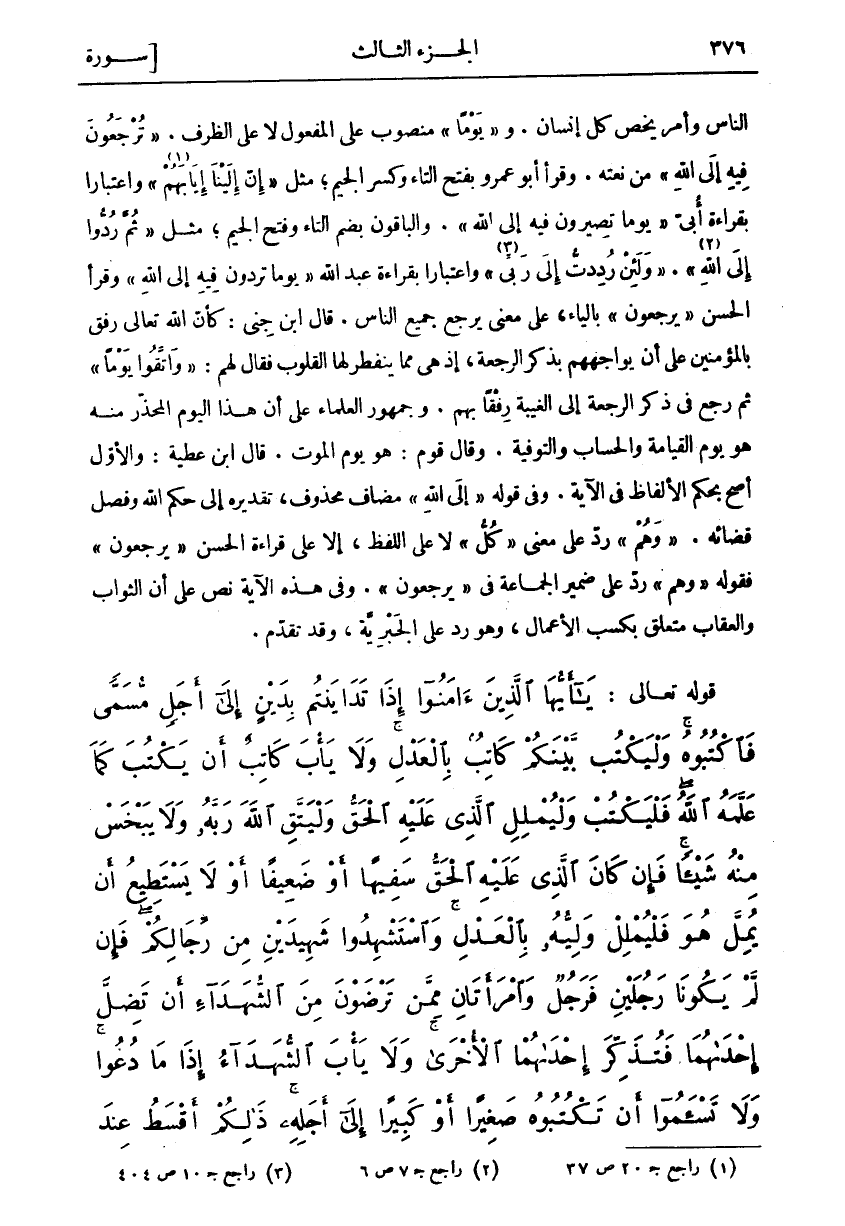 ٣٧٦ الجـزء الثالث [ســورة
الناس وأمر يخص كل إنسان . و « يَوْمًا » منصوب على المفعول لا على الظرف . « تُرْجَعُونَ
فِيهِ إِلَى اللهِ » من نعته . وقرأ أبو عمرو بفتح التاء وكسر الجيم ؛ مثل « إِنَّ إِلَيْنَا إِيَابَهُمْ (١) » واعتبارا
بقراءة أُبىّ « يوما تصيرون فيه إلى الله » . والباقون بضم التاء وفتح الجيم ؛ مثـل « ثُمَّ رُدُّوا
إِلَى اللهِ (٢) » . « وَلَئِنْ رُدِدتُّ إِلَى رَبِّى (٣) » واعتبارا بقراءة عبد الله « يوما تردون فِيهِ إلى اللهِ » وقرأ
الحسن « يرجعون » بالياء، على معنى يرجع جميع الناس . قال ابن جِنى : كأنّ الله تعالى رفق
بالمؤمنين على أن يواجههم بذكر الرجعة، إذ هى مما ينفطر لها القلوب فقال لهم : « وَاتَّقُوا يَوْمًا »
ثم رجع فى ذكر الرجعة إلى الغيبة رِفْقًا بهم . و جمهور العلماء على أن هـذا اليوم المحذّر منـه
هو يوم القيامة والحساب والتوفية . وقال قوم : هو يوم الموت . قال ابن عطية : والأوّل
أصح بحكم الألفاظ فى الآية . وفى قوله « إلَى اللهِ » مضاف محذوف، تقديره إلى حكم الله وفصل
قضائه . « وَهُمْ » ردّ على معنى « كُلُّ » لا على اللفظ ، إلا على قراءة الحسن « يرجعون »
فقوله « وهم » ردّ على ضمير الجماعة فى « يرجعون » . وفى هـذه الآية نص على أن الثواب
والعقاب متعلق بكسب الأعمال ، وهو رد على الجَبْرِيَّة ، وقد تقدّم .
قوله تعـالى : يَـٰٓأَيُّهَا ٱلَّذِينَ ءَامَنُوٓا إِذَا تَدَايَنتُم بِدَيْنٍ إِلَىٰٓ أَجَلٍ مُّسَمًّى
فَٱكْتُبُوهُۚ وَلْيَكْتُب بَّيْنَكُمْ كَاتِبٌۢ بِٱلْعَدْلِۚ وَلَا يَأْبَ كَاتِبٌ أَن يَكْتُبَ كَمَا
عَلَّمَهُ ٱللَّهُۚ فَلْيَكْتُبْ وَلْيُمْلِلِ ٱلَّذِى عَلَيْهِ ٱلْحَقُّ وَلْيَتَّقِ ٱللَّهَ رَبَّهُۥ وَلَا يَبْخَسْ
مِنْهُ شَيْـًٔاۚ فَإِن كَانَ ٱلَّذِى عَلَيْهِ ٱلْحَقُّ سَفِيهًا أَوْ ضَعِيفًا أَوْ لَا يَسْتَطِيعُ أَن
يُمِلَّ هُوَ فَلْيُمْلِلْ وَلِيُّهُۥ بِٱلْعَـدْلِۚ وَٱسْتَشْهِدُوا شَهِيدَيْنِ مِن رِّجَالِكُمْۖ فَإِن
لَّمْ يَكُونَا رَجُلَيْنِ فَرَجُلٌ وَٱمْرَأَتَانِ مِمَّن تَرْضَوْنَ مِنَ ٱلشُّهَـدَآءِ أَن تَضِـلَّ
إِحْدَىٰهُمَا فَتُـذَكِّرَ إِحْدَىٰهُمَا ٱلْأُخْرَىٰۚ وَلَا يَأْبَ ٱلشُّهَـدَآءُ إِذَا مَا دُعُوا ۚ
وَلَا تَسْـَٔمُوٓا أَن تَـكْتُبُوهُ صَغِيرًا أَوْ كَبِيرًا إِلَىٰٓ أَجَلِهِۦۚ ذَٰلِـكُمْ أَقْسَطُ عِندَ
(١) راجع جـ ٢٠ ص ٣٧ (٢) راجع جـ ٧ ص ٦ (٣) راجع جـ ١٠ ص ٤٠٤